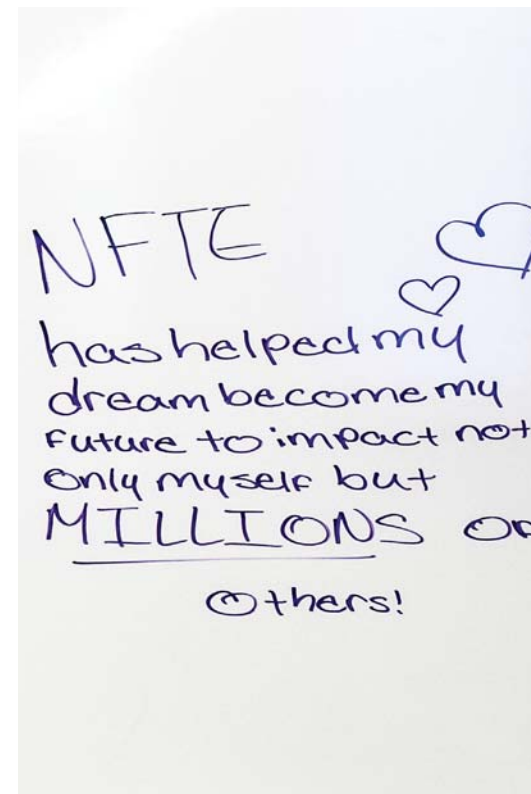 NFTE
has helped my
dream become my
future to impact not
only myself but
MILLIONS OF
others!